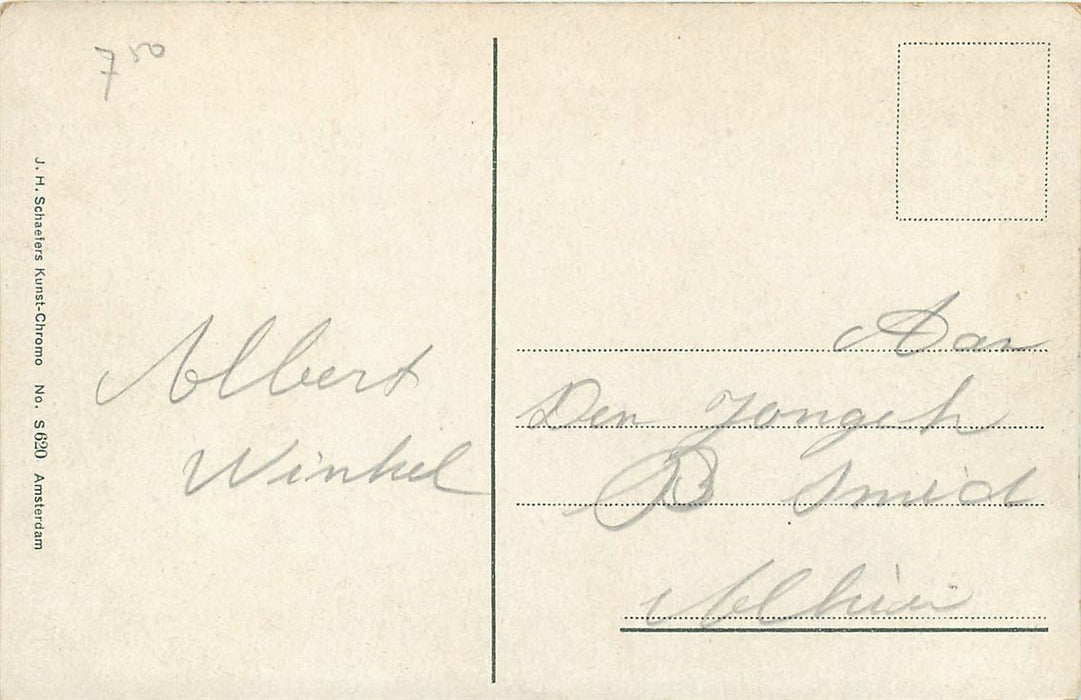 7 50
J. H. Schaefers Kunst-Chromo No. S 620 Amsterdam
Albert
Winkel
Aan
Den Jongeh
B Smid
Alhier